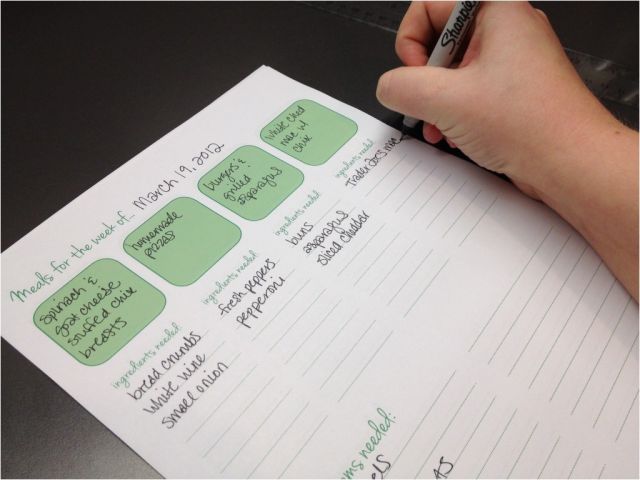 Meals for the week of... March 19, 2012
spinach &
goat cheese
stuffed chix
breasts
ingredients needed:
bread crumbs
white wine
small onion
homemade
pizzas
ingredients needed:
fresh peppers
pepperoni
burgers &
grilled
asparagus
ingredients needed:
buns
asparagus
sliced cheddar
white ched
mac w/
chix
ingredients needed:
trader joe's mac
ms needed:
els
Sharpie